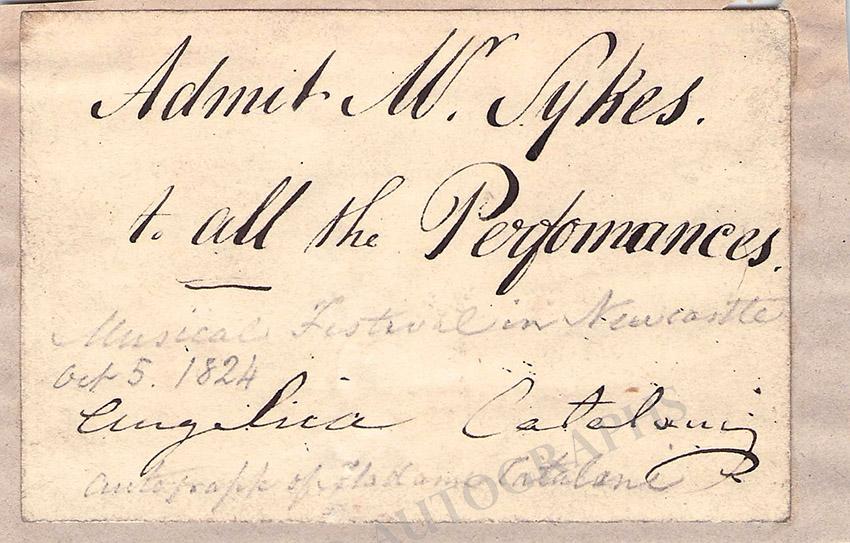 Admit Mr. Sykes.
to all the Perfomances.
Musical Festival in Newcastle
Oct 5. 1824
Angelica Catalani
autograph of Madame Catalani
AUTOGRAPHS